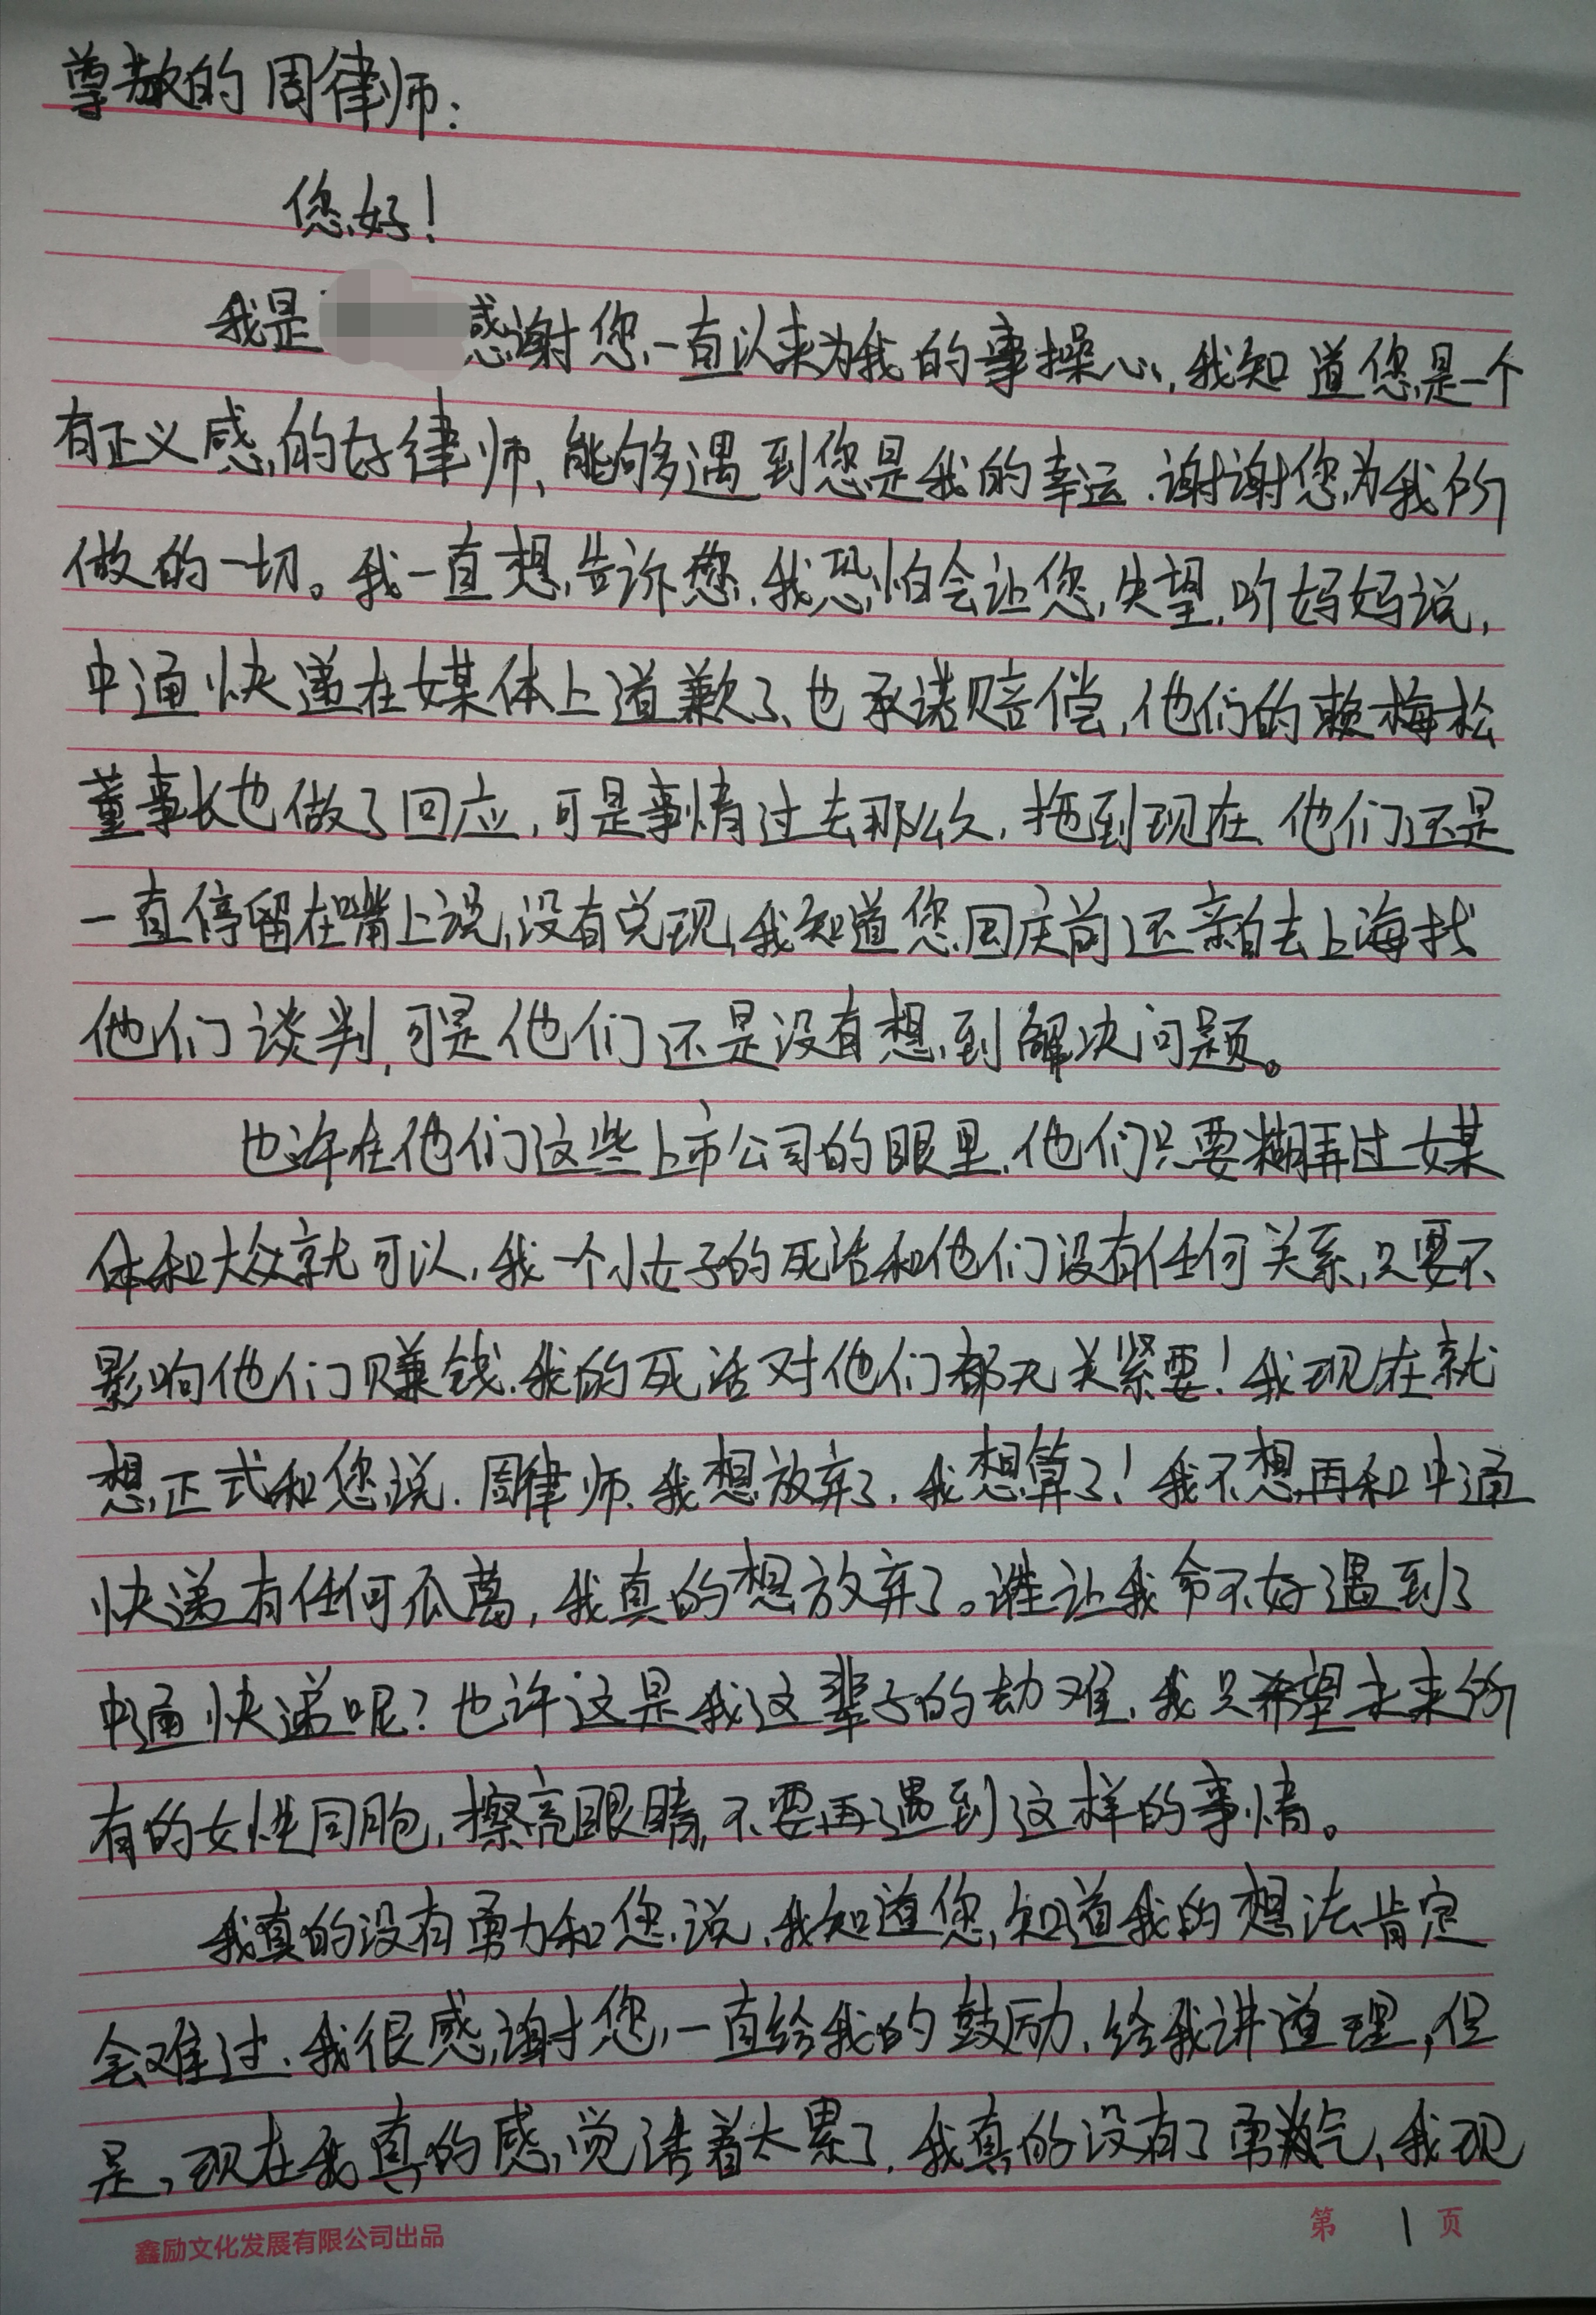 尊敬的周律师:
您好!
我是 感谢您一直以来为我的事操心,我知道您是一个
有正义感的好律师、能够遇到您是我的幸运.谢谢您为我所
做的一切。我一直想告诉您,我恐怕会让您失望,听妈妈说,
中通快递在媒体上道歉了、也承诺赔偿,他们的赖梅松
董事长也做了回应,可是事情过去那么久,拖到现在、他们还是
一直停留在嘴上说,没有兑现,我知道您国庆前还亲自去上海找
他们谈判,可是他们还是没有想到解决问题。
也许在他们这些上市公司的眼里、他们只要糊弄过媒
体和大众就可以,我一个小女子的死活和他们没有任何关系,只要不
影响他们赚钱.我的死活对他们都无关紧要!我现在就
想正式和您说.周律师、我想放弃了,我想算了!我不想再和中通
快递有任何瓜葛,我真的想放弃了。谁让我命不好遇到了
中通快递呢?也许这是我这辈子的劫难、我只希望未来所
有的女性同胞,擦亮眼睛,不要再遇到这样的事情。
我真的没有勇力和您说、我知道您知道我的想法肯定
会难过、我很感谢您一直给我的鼓励、给我讲道理,但
是,现在我真的感觉活着太累了、我真的没有了勇气,我现
鑫励文化发展有限公司出品
第 1 页